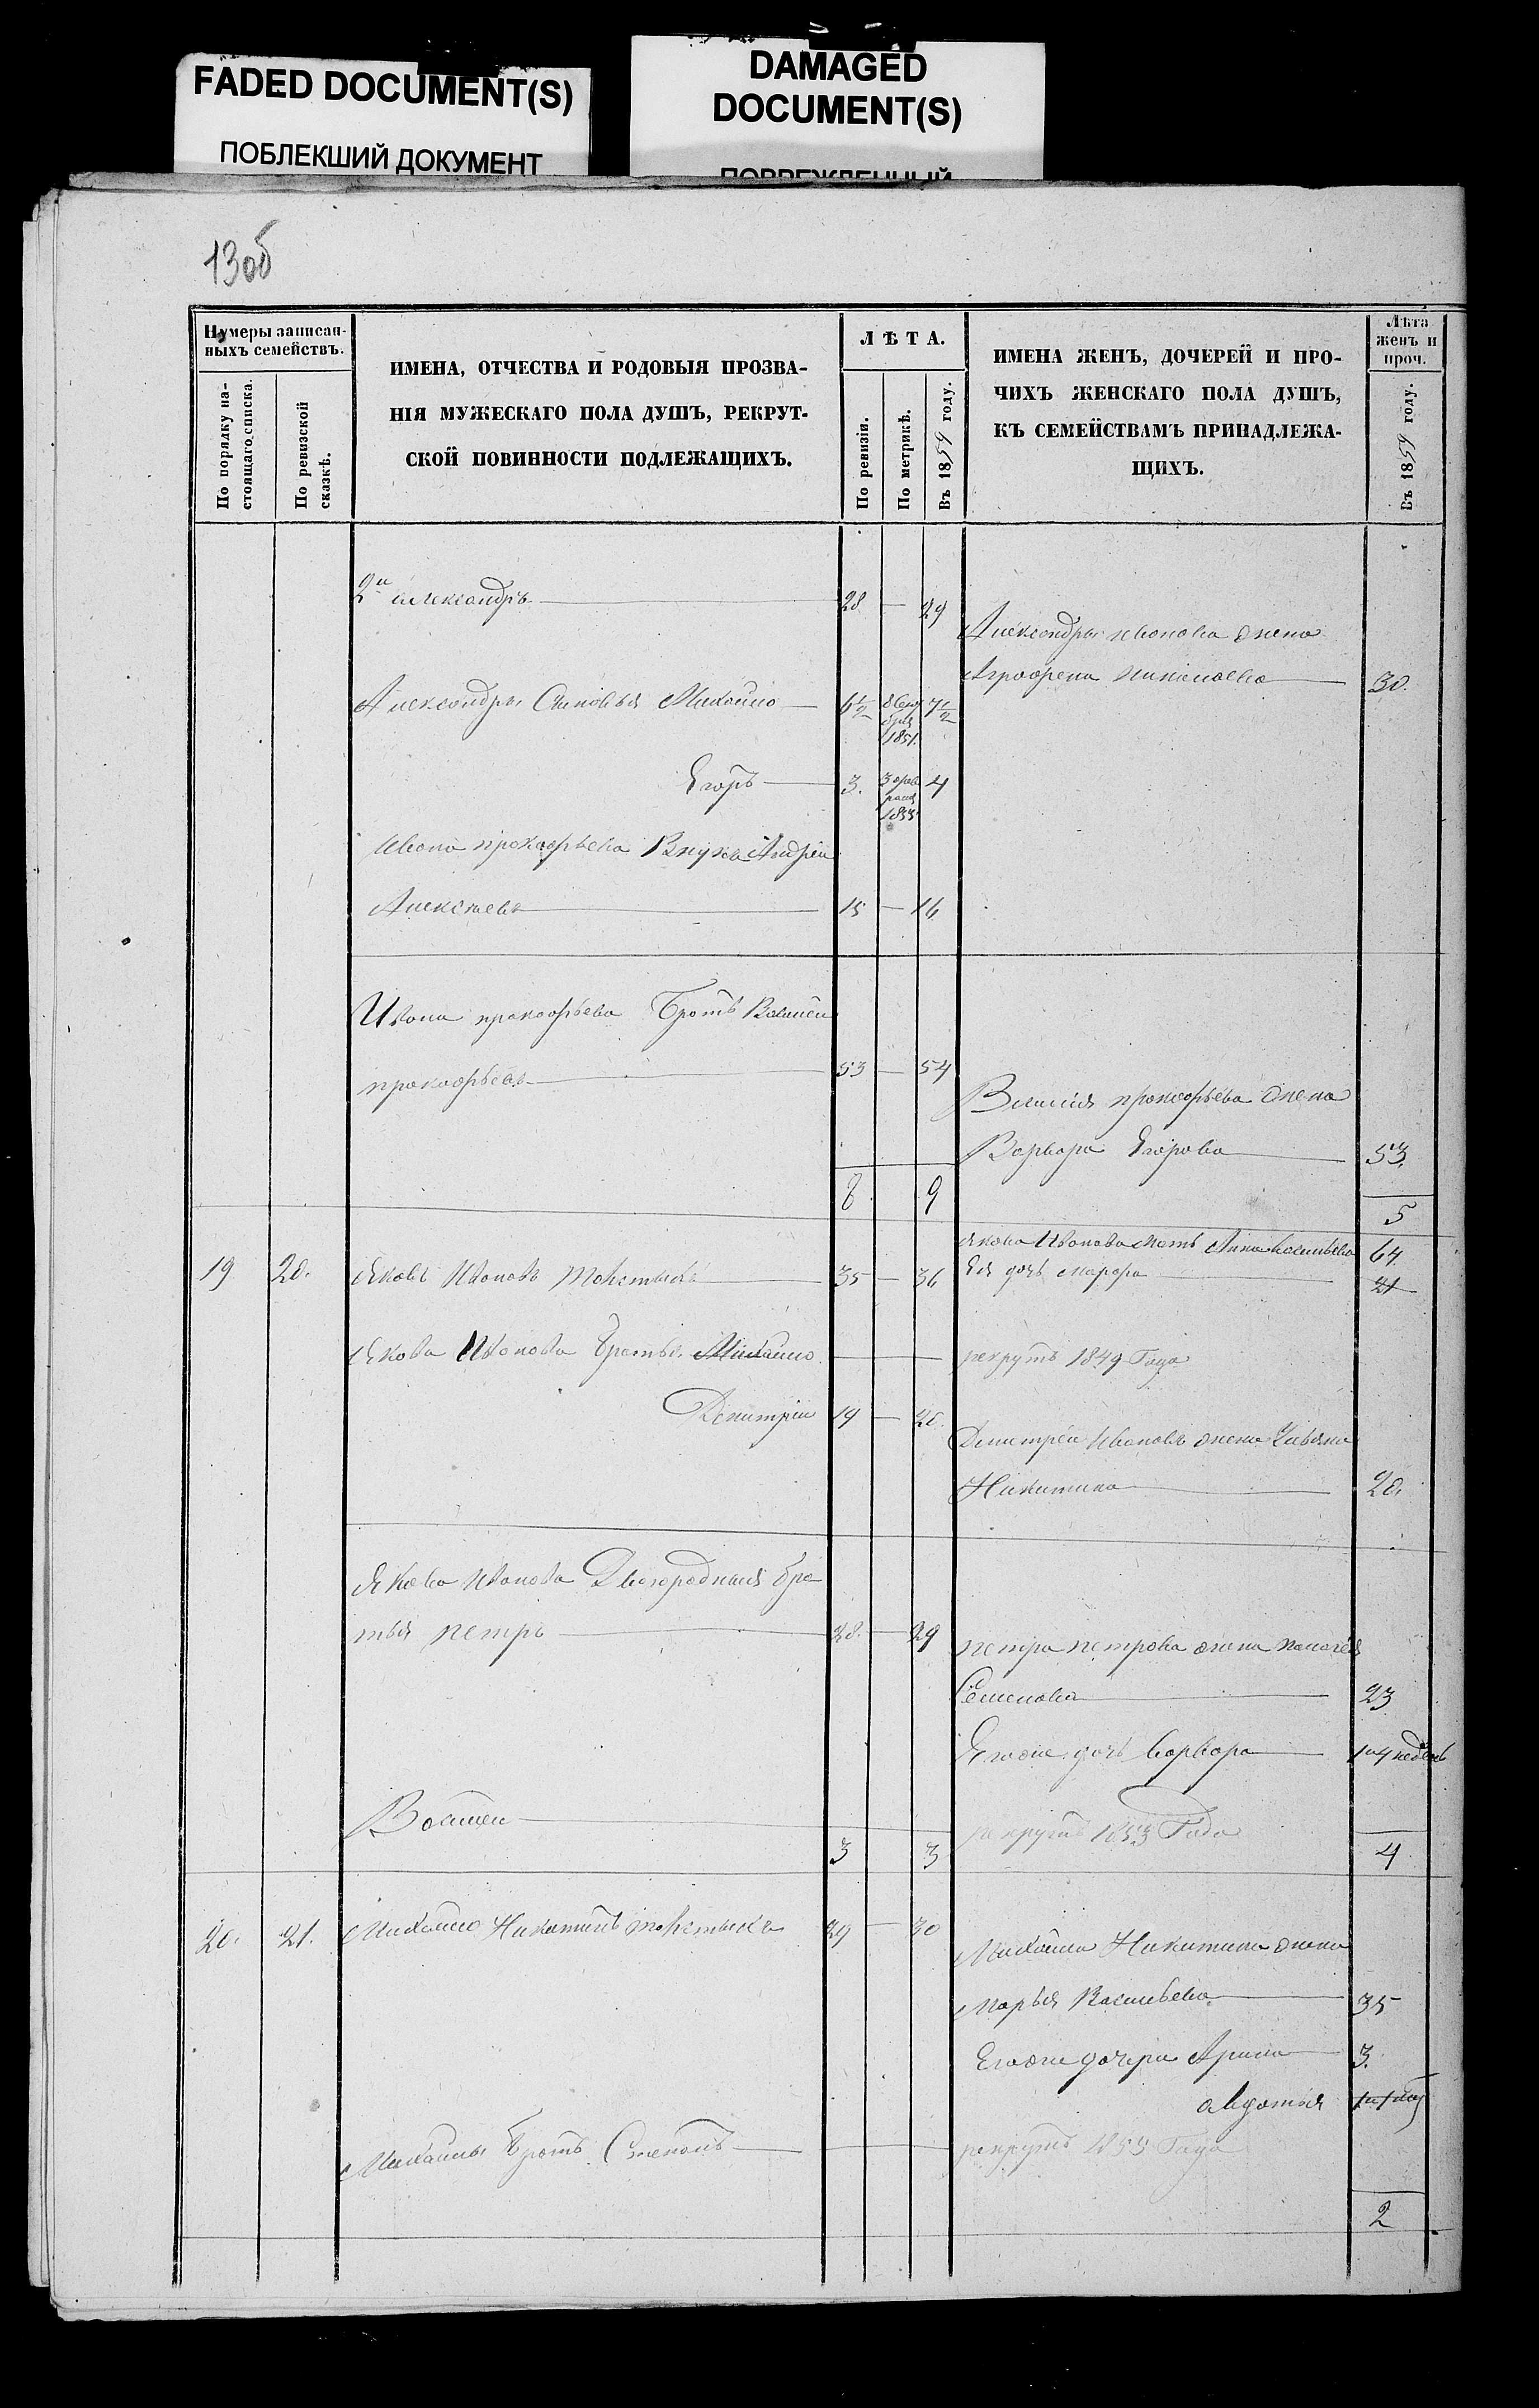 FADED DOCUMENT(S)
ПОБЛЕКШИЙ ДОКУМЕНТ
DAMAGED
DOCUMENT(S)
ПОВРЕЖДЕННЫЙ
13об
Нумеры записан-
ныхъ семействъ.
По порядку на-
стоящаго списка.
По ревизской
сказкѣ.
ИМЕНА, ОТЧЕСТВА И РОДОВЫЯ ПРОЗВА-
НІЯ МУЖЕСКАГО ПОЛА ДУШЪ, РЕКРУТ-
СКОЙ ПОВИННОСТИ ПОДЛЕЖАЩИХЪ.
ЛѢТА.
По ревизіи.
По метрикѣ.
Въ 1859 году.
ИМЕНА ЖЕНЪ, ДОЧЕРЕЙ И ПРО-
ЧИХЪ ЖЕНСКАГО ПОЛА ДУШЪ,
КЪ СЕМЕЙСТВАМЪ ПРИНАДЛЕЖА-
ЩИХЪ.
Лѣта
женъ и
проч.
Въ 1859 году.
2й александръ 28 — 29
Александры иванова жена
Агрофена николаева 30.
Александры Сыновья Михайло 6½ 1851. 7½
Егоръ 3. 3 фев
раля
1855 4
Ивана прокофьева Внукъ Андрей
Алексѣевъ 15 — 16
Ивана прокофьева Братъ Василей
прокофьевъ 53 — 54
Василія прокофьева жена
Варвара Егорова 53.
8 9 5
19 20. Яковъ Ивановъ 35 — 36
Якова Иванова мать Анна Васильева 64.
Ея дочь 21
Якова Иванова братья Михайло рекрутъ 1849 Года
Дмитрій 19 — 20.
Дмитрія Иванова жена Ульяна
Никитина 20.
Якова Иванова Двоюродныя бра
тья петръ 28. — 29
петра петрова жена палагея
Семенова 23
Егоже дочь Варвара 14 недель
Василей рекрутъ 1853 Года
3 3 4
20. 21. Михайло Никитинъ 29 — 30
Михайла Никитина жена
Марья Васильева 35
Егоже дочери Арина 3.
авдотья
Михайлы братъ Степанъ рекрутъ 1855 Года
2